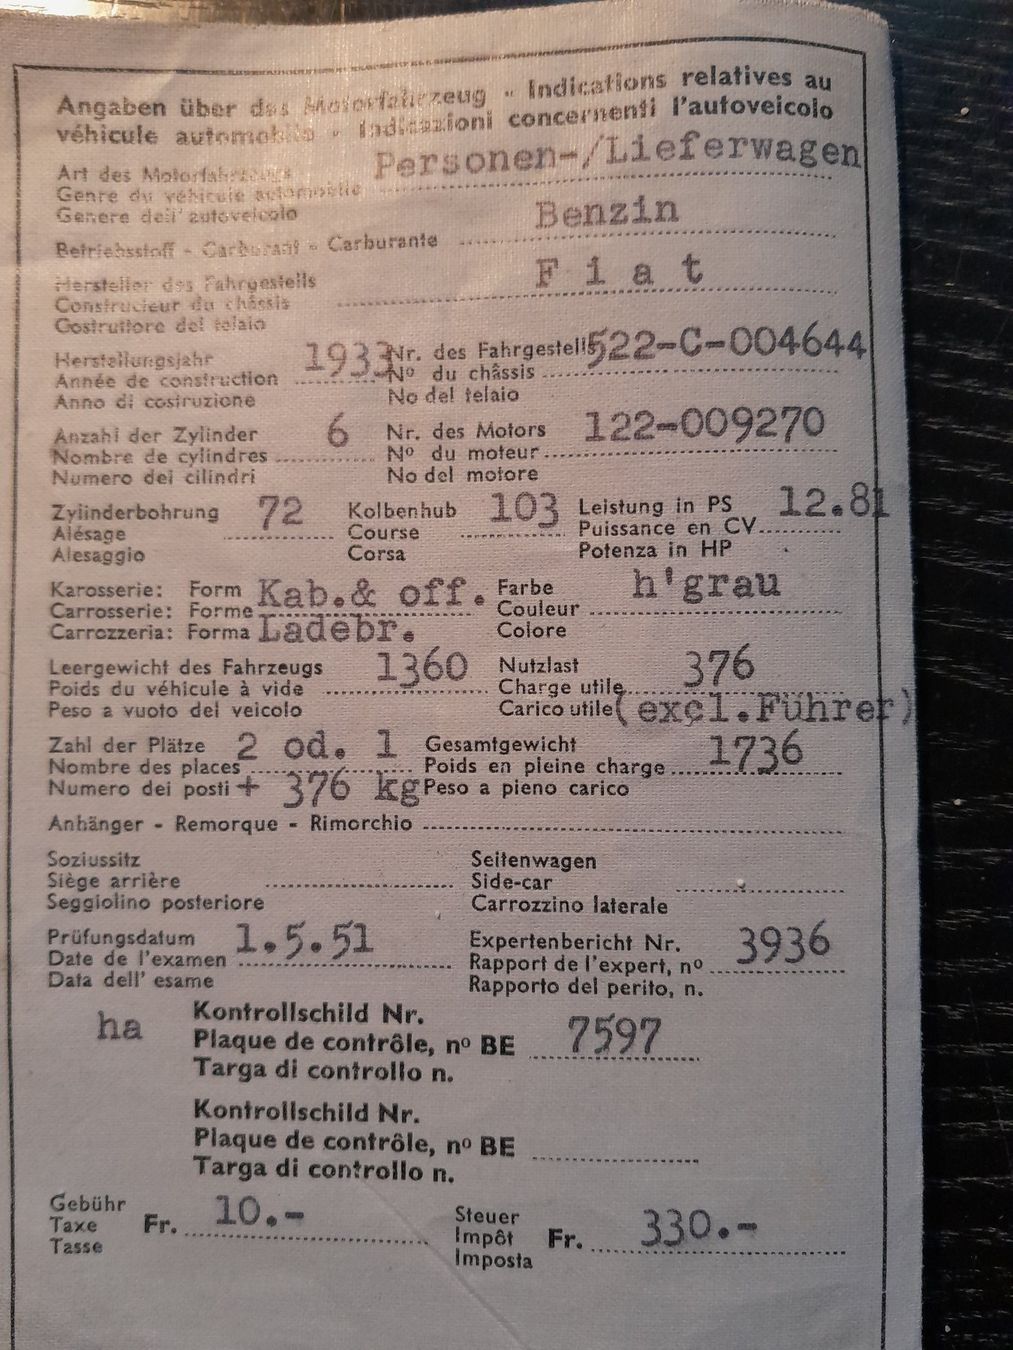 Angaben über das Motorfahrzeug - Indications relatives au
véhicule automobile - Indicazioni concernenti l'autoveicolo
Art des Motorfahrzeugs Personen-/Lieferwagen
Genre du véhicule automobile
Genere dell' autoveicolo
Betriebsstoff - Carburant - Carburante Benzin
Hersteller des Fahrgestells Fiat
Constructeur du châssis
Costruttore del telaio
Herstellungsjahr 1933 Nr. des Fahrgestells 522-C-004644
Année de construction Nº du châssis
Anno di costruzione No del telaio
Anzahl der Zylinder 6 Nr. des Motors 122-009270
Nombre de cylindres Nº du moteur
Numero dei cilindri No del motore
Zylinderbohrung 72 Kolbenhub 103 Leistung in PS 12.81
Alésage Course Puissance en CV
Alesaggio Corsa Potenza in HP
Karosserie: Form Kab.& off. Farbe h'grau
Carrosserie: Forme Couleur
Carrozzeria: Forma Ladebr. Colore
Leergewicht des Fahrzeugs 1360 Nutzlast 376
Poids du véhicule à vide Charge utile
Peso a vuoto del veicolo Carico utile (excl.Führer)
Zahl der Plätze 2 od. 1 Gesamtgewicht 1736
Nombre des places Poids en pleine charge
Numero dei posti + 376 kg Peso a pieno carico
Anhänger - Remorque - Rimorchio
Soziussitz Seitenwagen
Siège arrière Side-car
Seggiolino posteriore Carrozzino laterale
Prüfungsdatum 1.5.51 Expertenbericht Nr. 3936
Date de l'examen Rapport de l'expert, nº
Data dell' esame Rapporto del perito, n.
ha Kontrollschild Nr.
Plaque de contrôle, nº BE 7597
Targa di controllo n.
Kontrollschild Nr.
Plaque de contrôle, nº BE
Targa di controllo n.
Gebühr Steuer
Taxe Fr. 10.- Impôt Fr. 330.-
Tasse Imposta